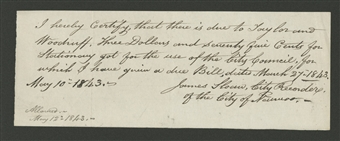 I hereby Certify, that there is due to Taylor and
Woodruff, Three Dollars and seventy five Cents for
Stationary got for the use of the City Council, for
which I have given a due Bill, dated March 27-1843,
May 10th 1843.
James Sloan, City Recorder,
of the City of Nauvoo,
Allowed
May 13th 1843.